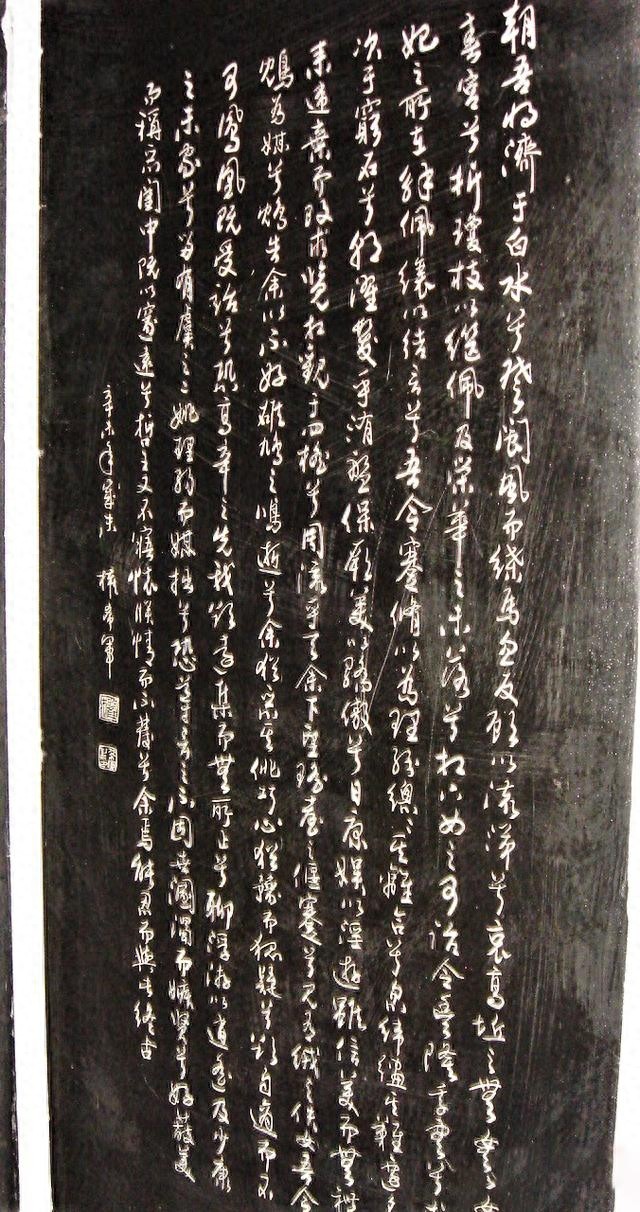 朝吾将濟于白水兮登閬風而緤馬忽反顧以流涕兮哀高坵之無女
春宮兮折瓊枝以繼佩及榮華之未落兮相下女之可詒令豐隆乘雲兮
妃之所在解佩纕以結言兮吾令蹇脩以為理紛總總其離合兮忽緯繣其難遷
次于窮石兮朝濯髮乎洧盤保厥美以驕傲兮日康娛以淫遊雖信美而無禮
來違棄而改求覽相觀于四極兮周流乎天余下望瑤臺之偃蹇兮見有娀之佚女吾令
鴆為媒兮鴆告余以不好雄鳩之鳴逝兮余猶惡其佻巧心猶豫而狐疑兮欲自適而不
可鳳凰既受詒兮恐高辛之先我欲遠集而無所止兮聊浮游以逍遙及少康
之未家兮留有虞之二姚理弱而媒拙兮恐導言之不固世溷濁而嫉賢兮好蔽美
而稱惡閨中既以邃遠兮哲王又不寤懷朕情而不發兮余焉能忍而與此終古
辛未年歲末